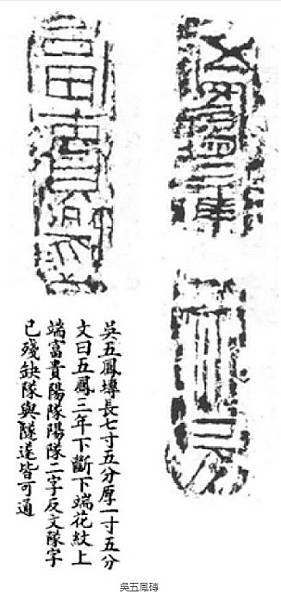 五鳳三年
富貴
吳五鳳塼長七寸五分厚一寸五分
文曰五鳳三年下斷下端花紋上
端富貴陽隊陽隊二字反文隊字
已殘缺隊與隧遂皆可通
吳五鳳磚